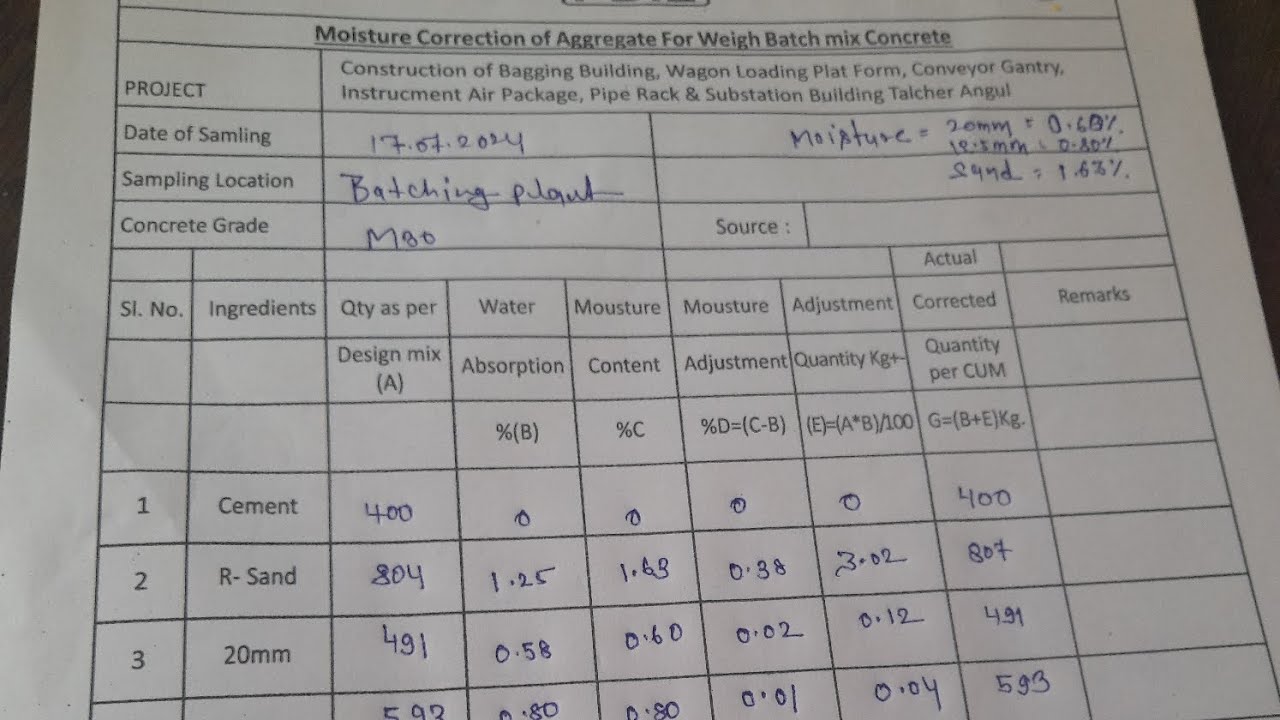 Moisture Correction of Aggregate For Weigh Batch mix Concrete
PROJECT Construction of Bagging Building, Wagon Loading Plat Form, Conveyor Gantry, Instrucment Air Package, Pipe Rack & Substation Building Talcher Angul
Date of Samling 17.07.2024 Moisture = 20mm = 0.60%.
12.5mm = 0.80%
Sampling Location Batching plant Sand = 1.63%.
Concrete Grade M30 Source :
Actual
Sl. No. Ingredients Qty as per Water Mousture Mousture Adjustment Corrected Remarks
Design mix (A) Absorption Content Adjustment Quantity Kg+- Quantity per CUM
%(B) %C %D=(C-B) (E)=(A*B)/100 G=(B+E)Kg.
1 Cement 400 0 0 0 0 400
2 R- Sand 804 1.25 1.63 0.38 3.02 807
3 20mm 491 0.58 0.60 0.02 0.12 491
593 0.80 0.80 0.01 0.04 593